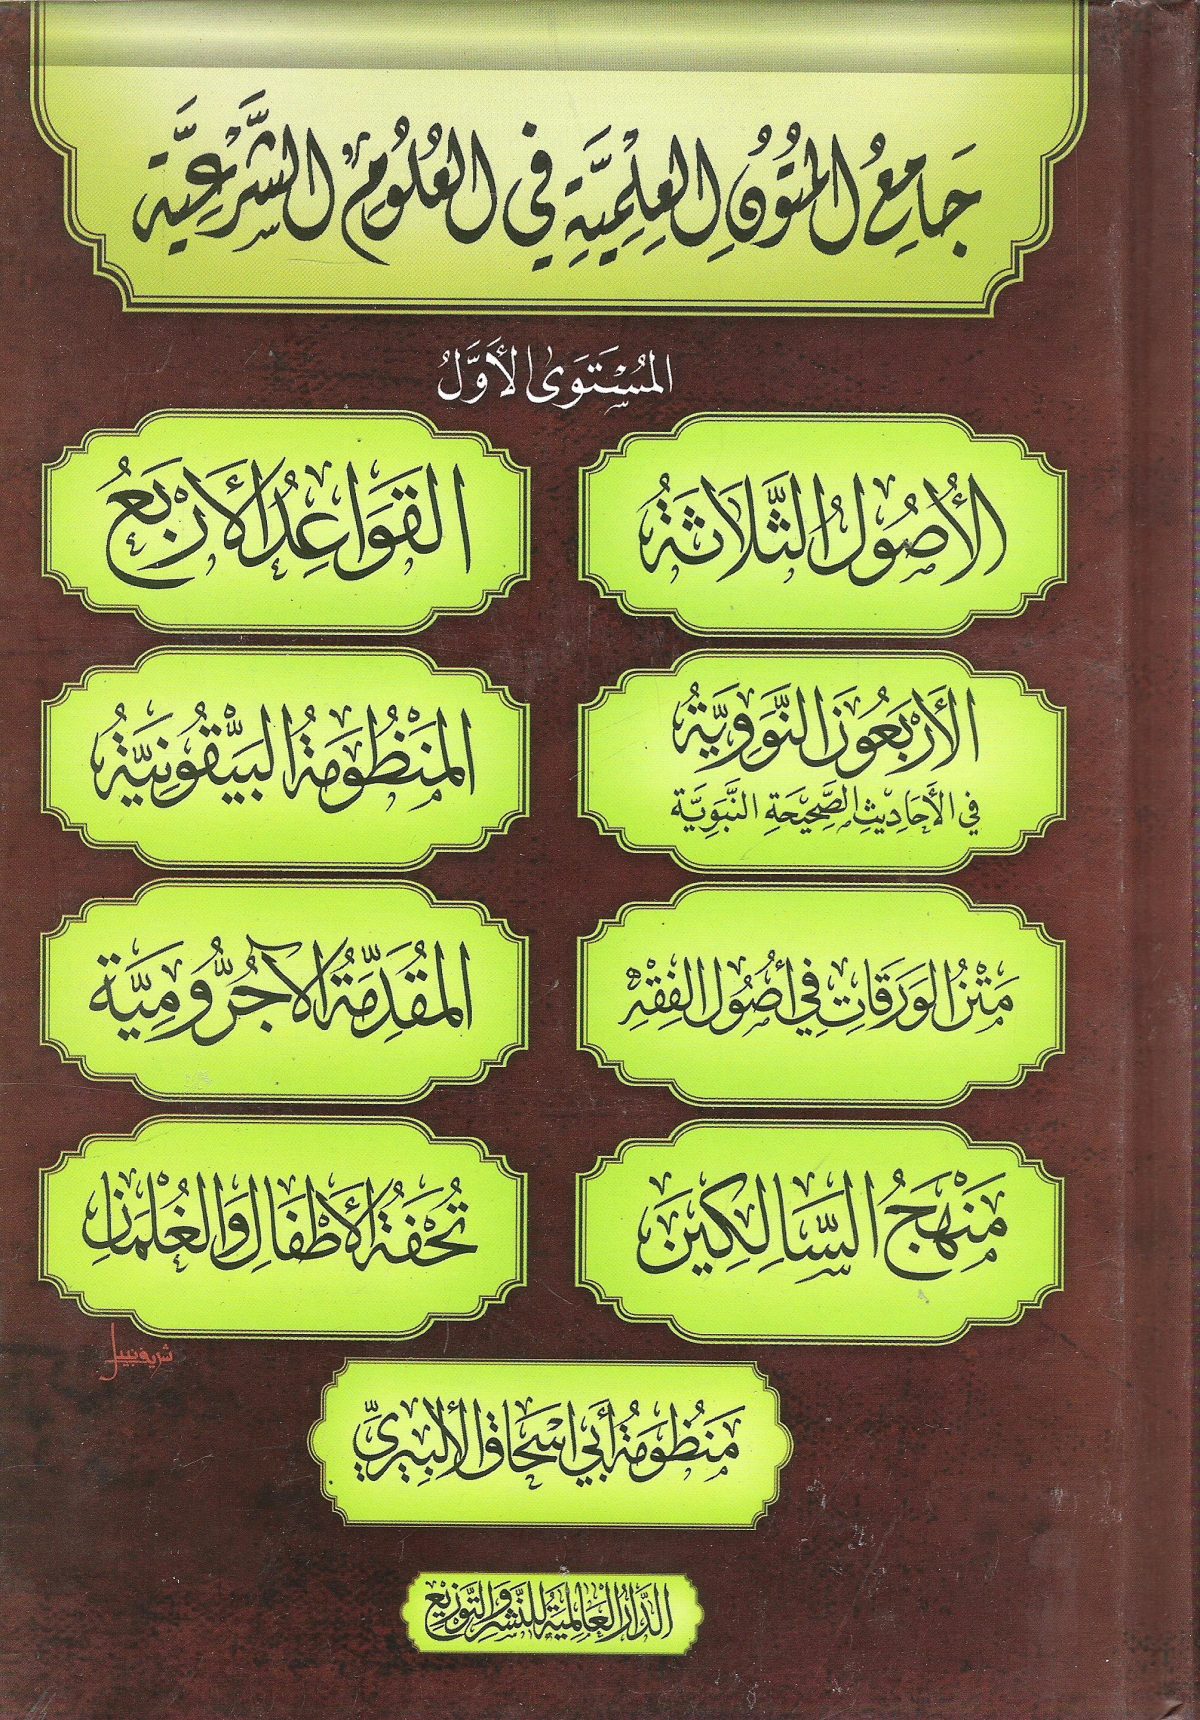 جَامِعُ المُتُونِ العِلْمِيَّةِ فِي العُلُومِ الشَّرْعِيَّة
المُسْتَوَى الأَوَّلُ
الأُصُولُ الثَّلَاثَةُ
القَوَاعِدُ الأَرْبَعُ
الأَرْبَعُونَ النَّوَوِيَّةُ
فِي الأَحَادِيثِ الصَّحِيحَةِ النَّبَوِيَّةِ
المَنْظُومَةُ البَيْقُونِيَّةُ
مَتْنُ الوَرَقَاتِ فِي أُصُولِ الفِقْهِ
المُقَدِّمَةُ الآجُرُّومِيَّة
مَنْهَجُ السَّالِكِينَ
تُحْفَةُ الأَطْفَالِ وَالغُلْمَانِ
شريف نبيل
مَنْظُومَةُ أَبِي اسْحَاق الأَلبِيرِيِّ
الدَّارُ العَالَمِيَّةُ لِلنَّشْرِ وَالتَّوْزِيعِ